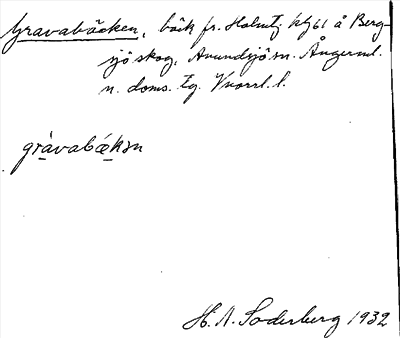 Gravabäcken, bäck fr. Holmtj. å Berg-
sjö skog, Anundsjö sn. Ångerml.
n. doms. tg. Vnorrl. l.
gràvabækən
H. A. Söderberg 1932